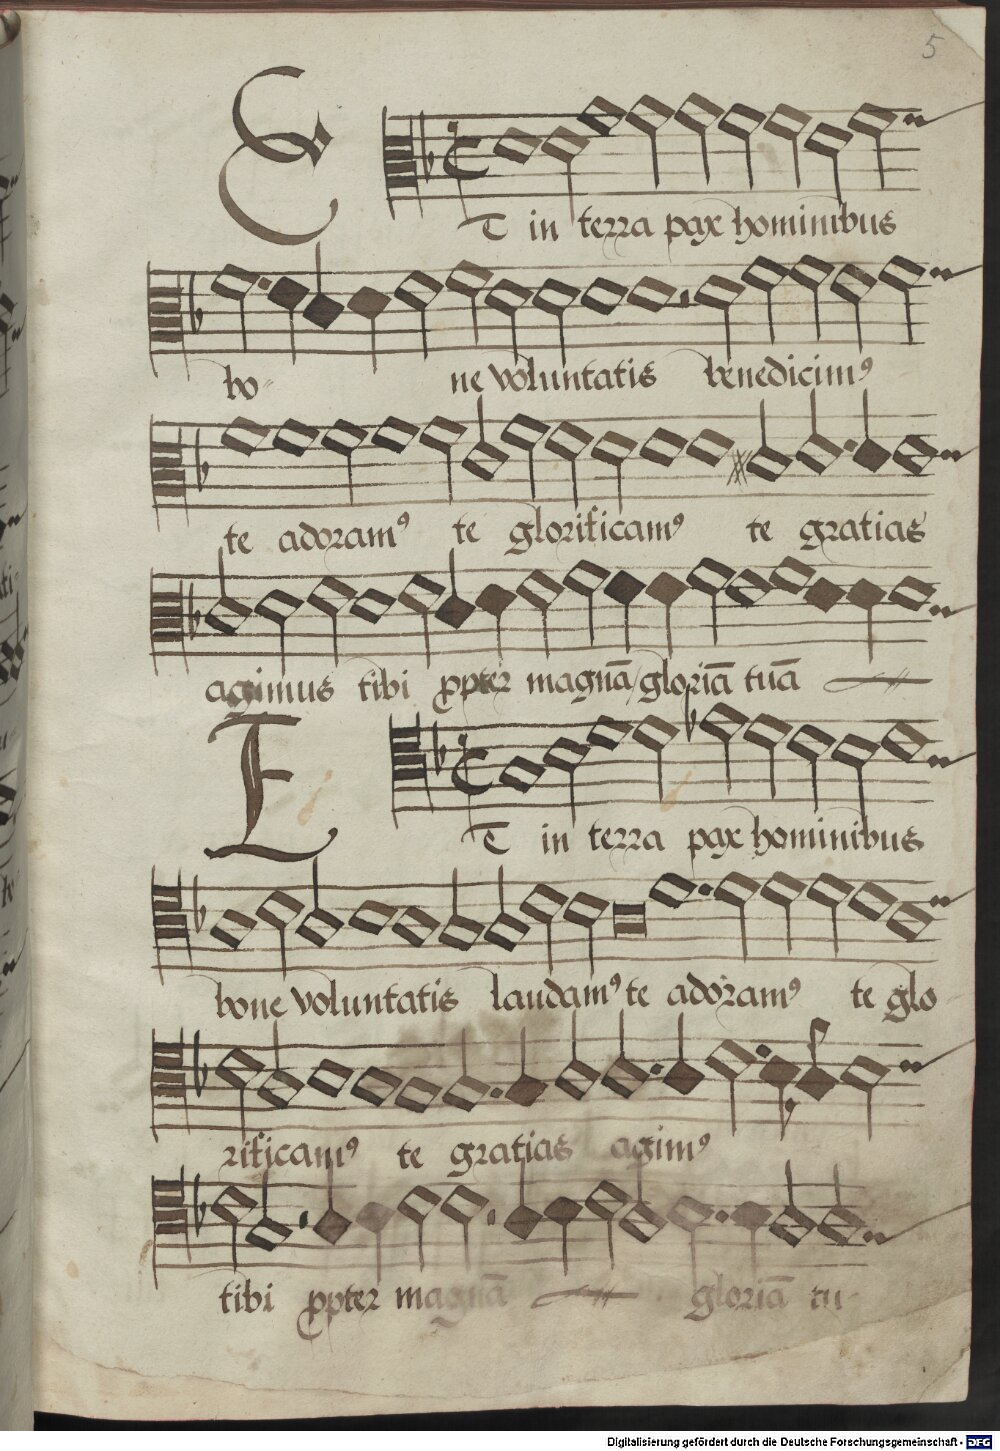 5
ET in terra pax hominibus
bo- ne voluntatis benedicimꝰ
te adoramꝰ te glorificamꝰ te gratias
agimus tibi ꝓpter magnā gloriā tuā
ET in terra pax hominibus
bone voluntatis laudamꝰ te adoramꝰ te glo
rificamꝰ te gratias agimꝰ
tibi ꝓpter magnā gloriā tu-
Digitalisierung gefördert durch die Deutsche Forschungsgemeinschaft - DFG